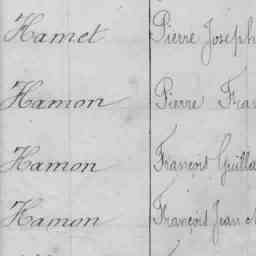 Hamet Pierre Joseph
Hamon Pierre Fran
Hamon François Guilla
Hamon François Jean